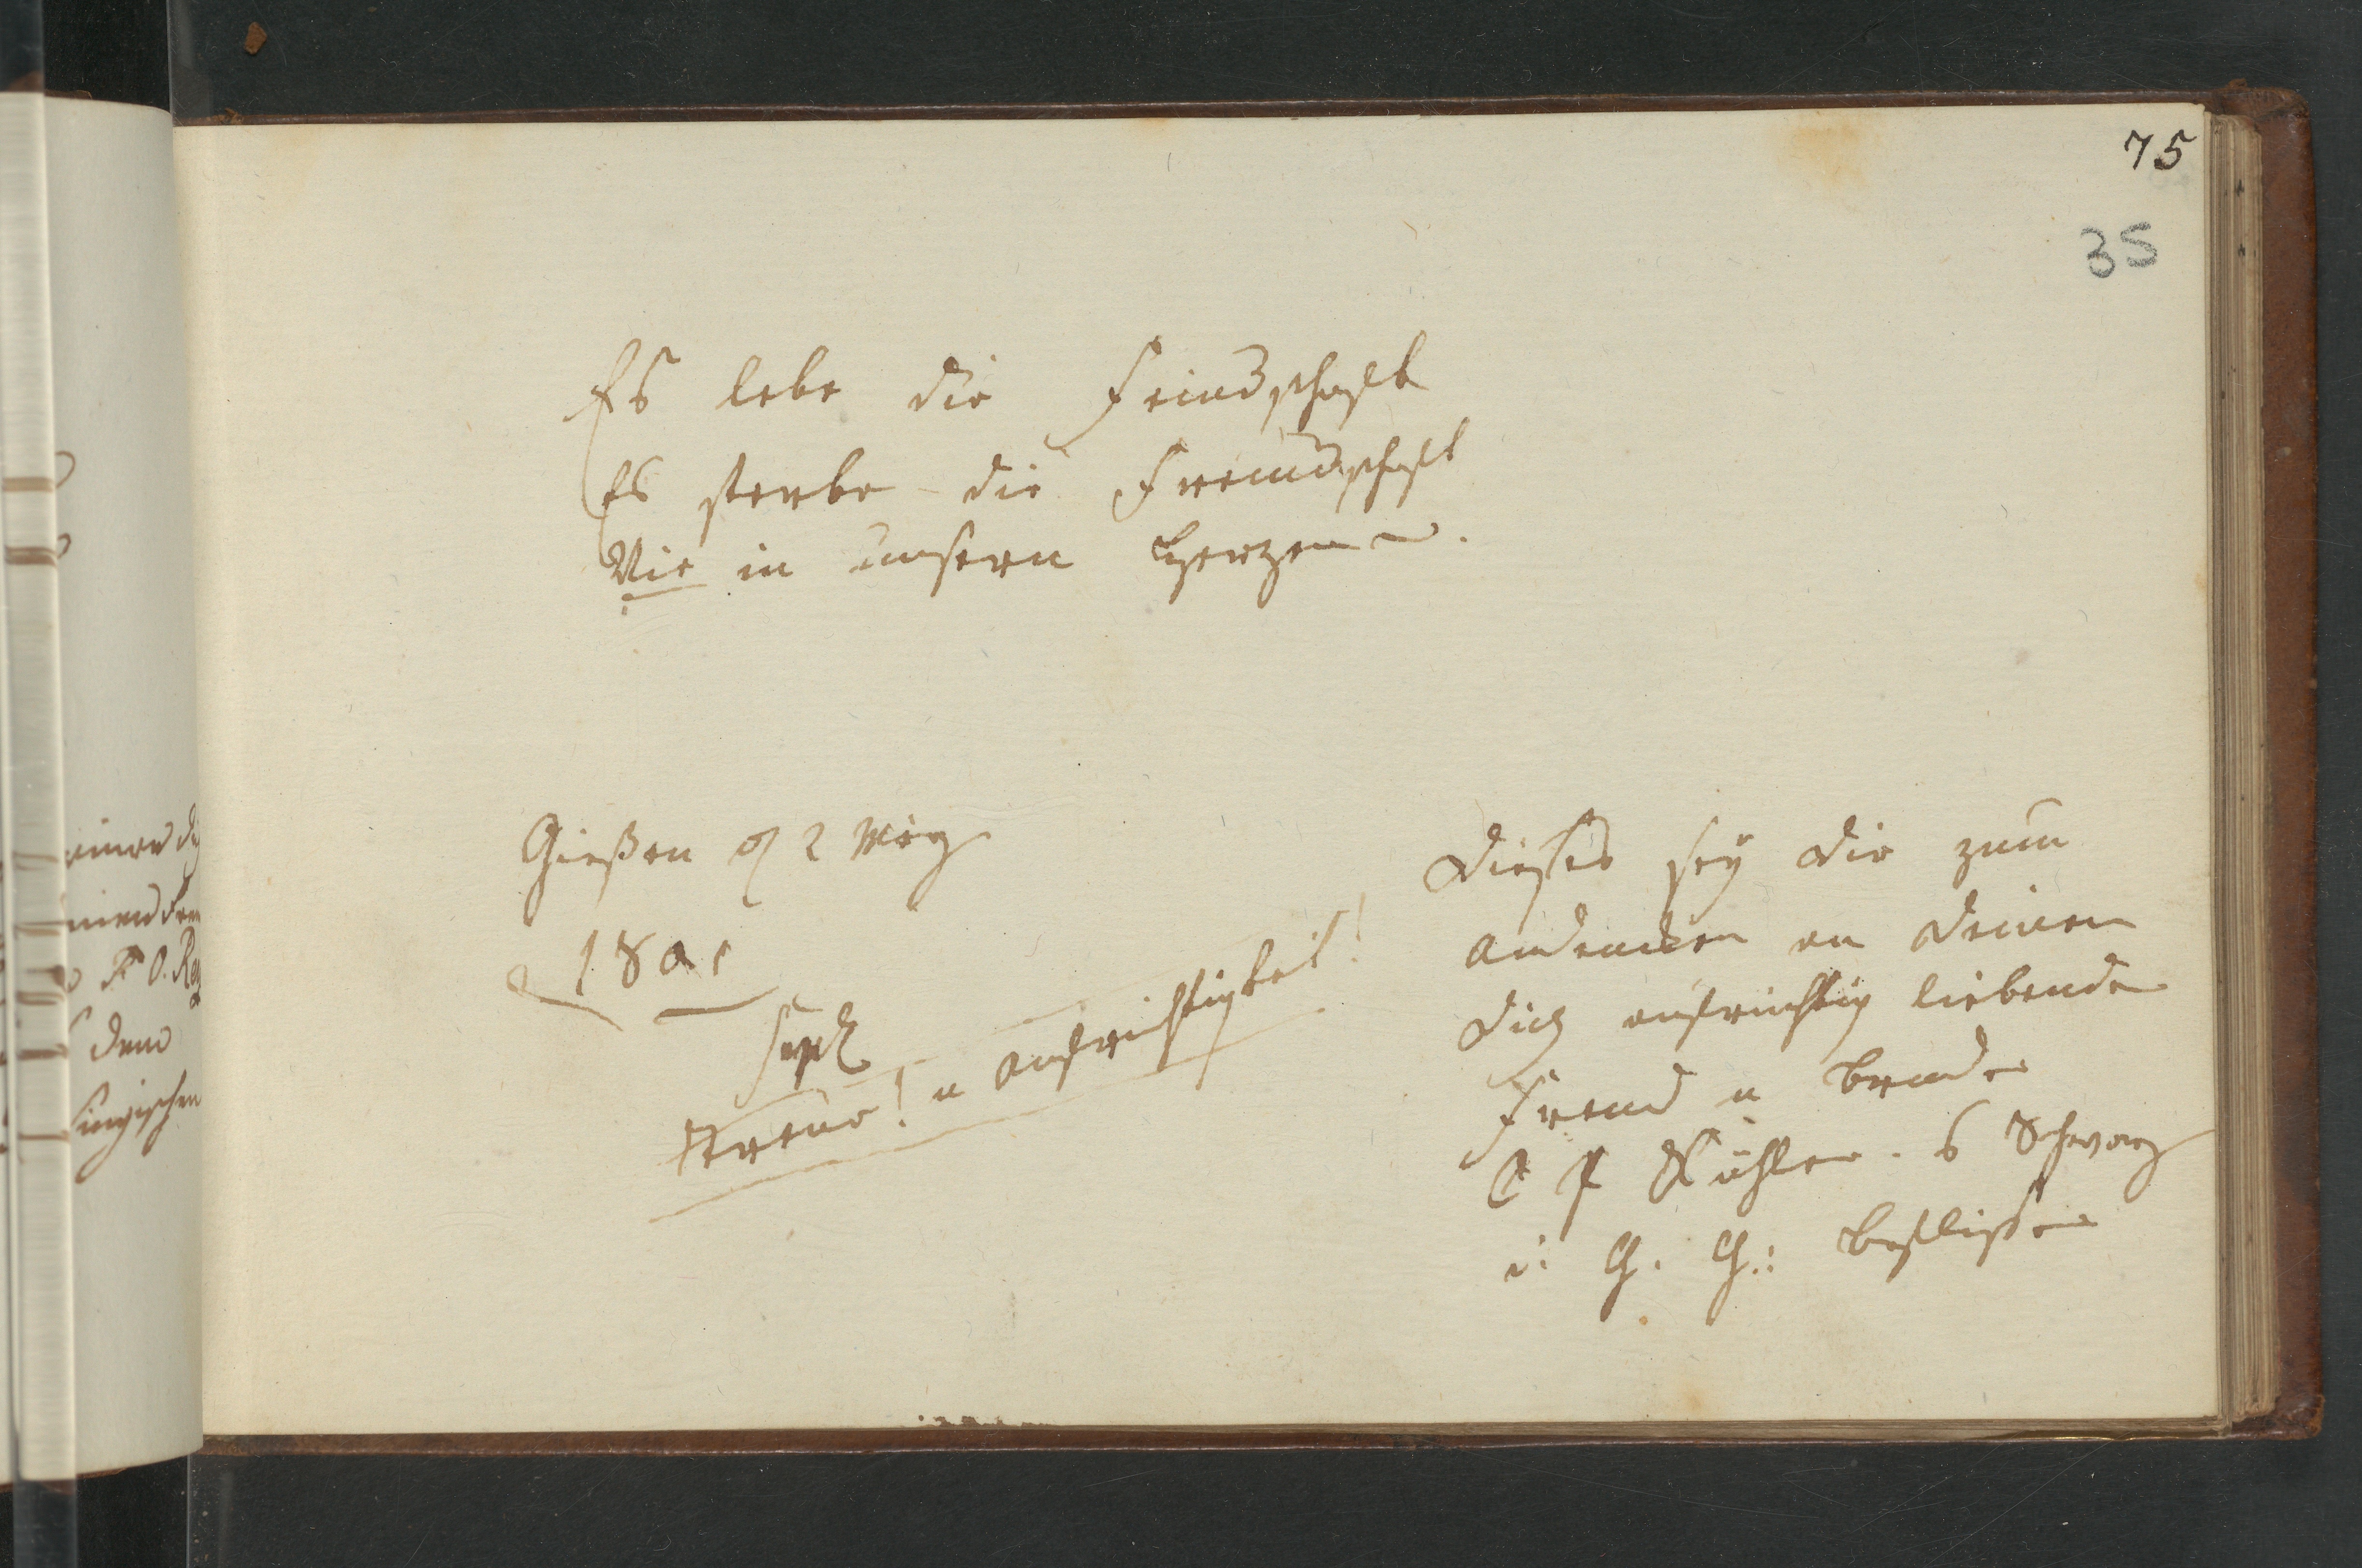 75
35
Es lebe die Feindschaft
Es sterbe die Freundschaft
Nie in unsern Herzen
Gießen d 2 März
1801
Symb
Treue! u Aufrichtigkeit!
Dieses sey dir zum
Andencken an Deinen
Dich aufrichtig liebenden
Freund u Bruder
Kühler
Beflissen